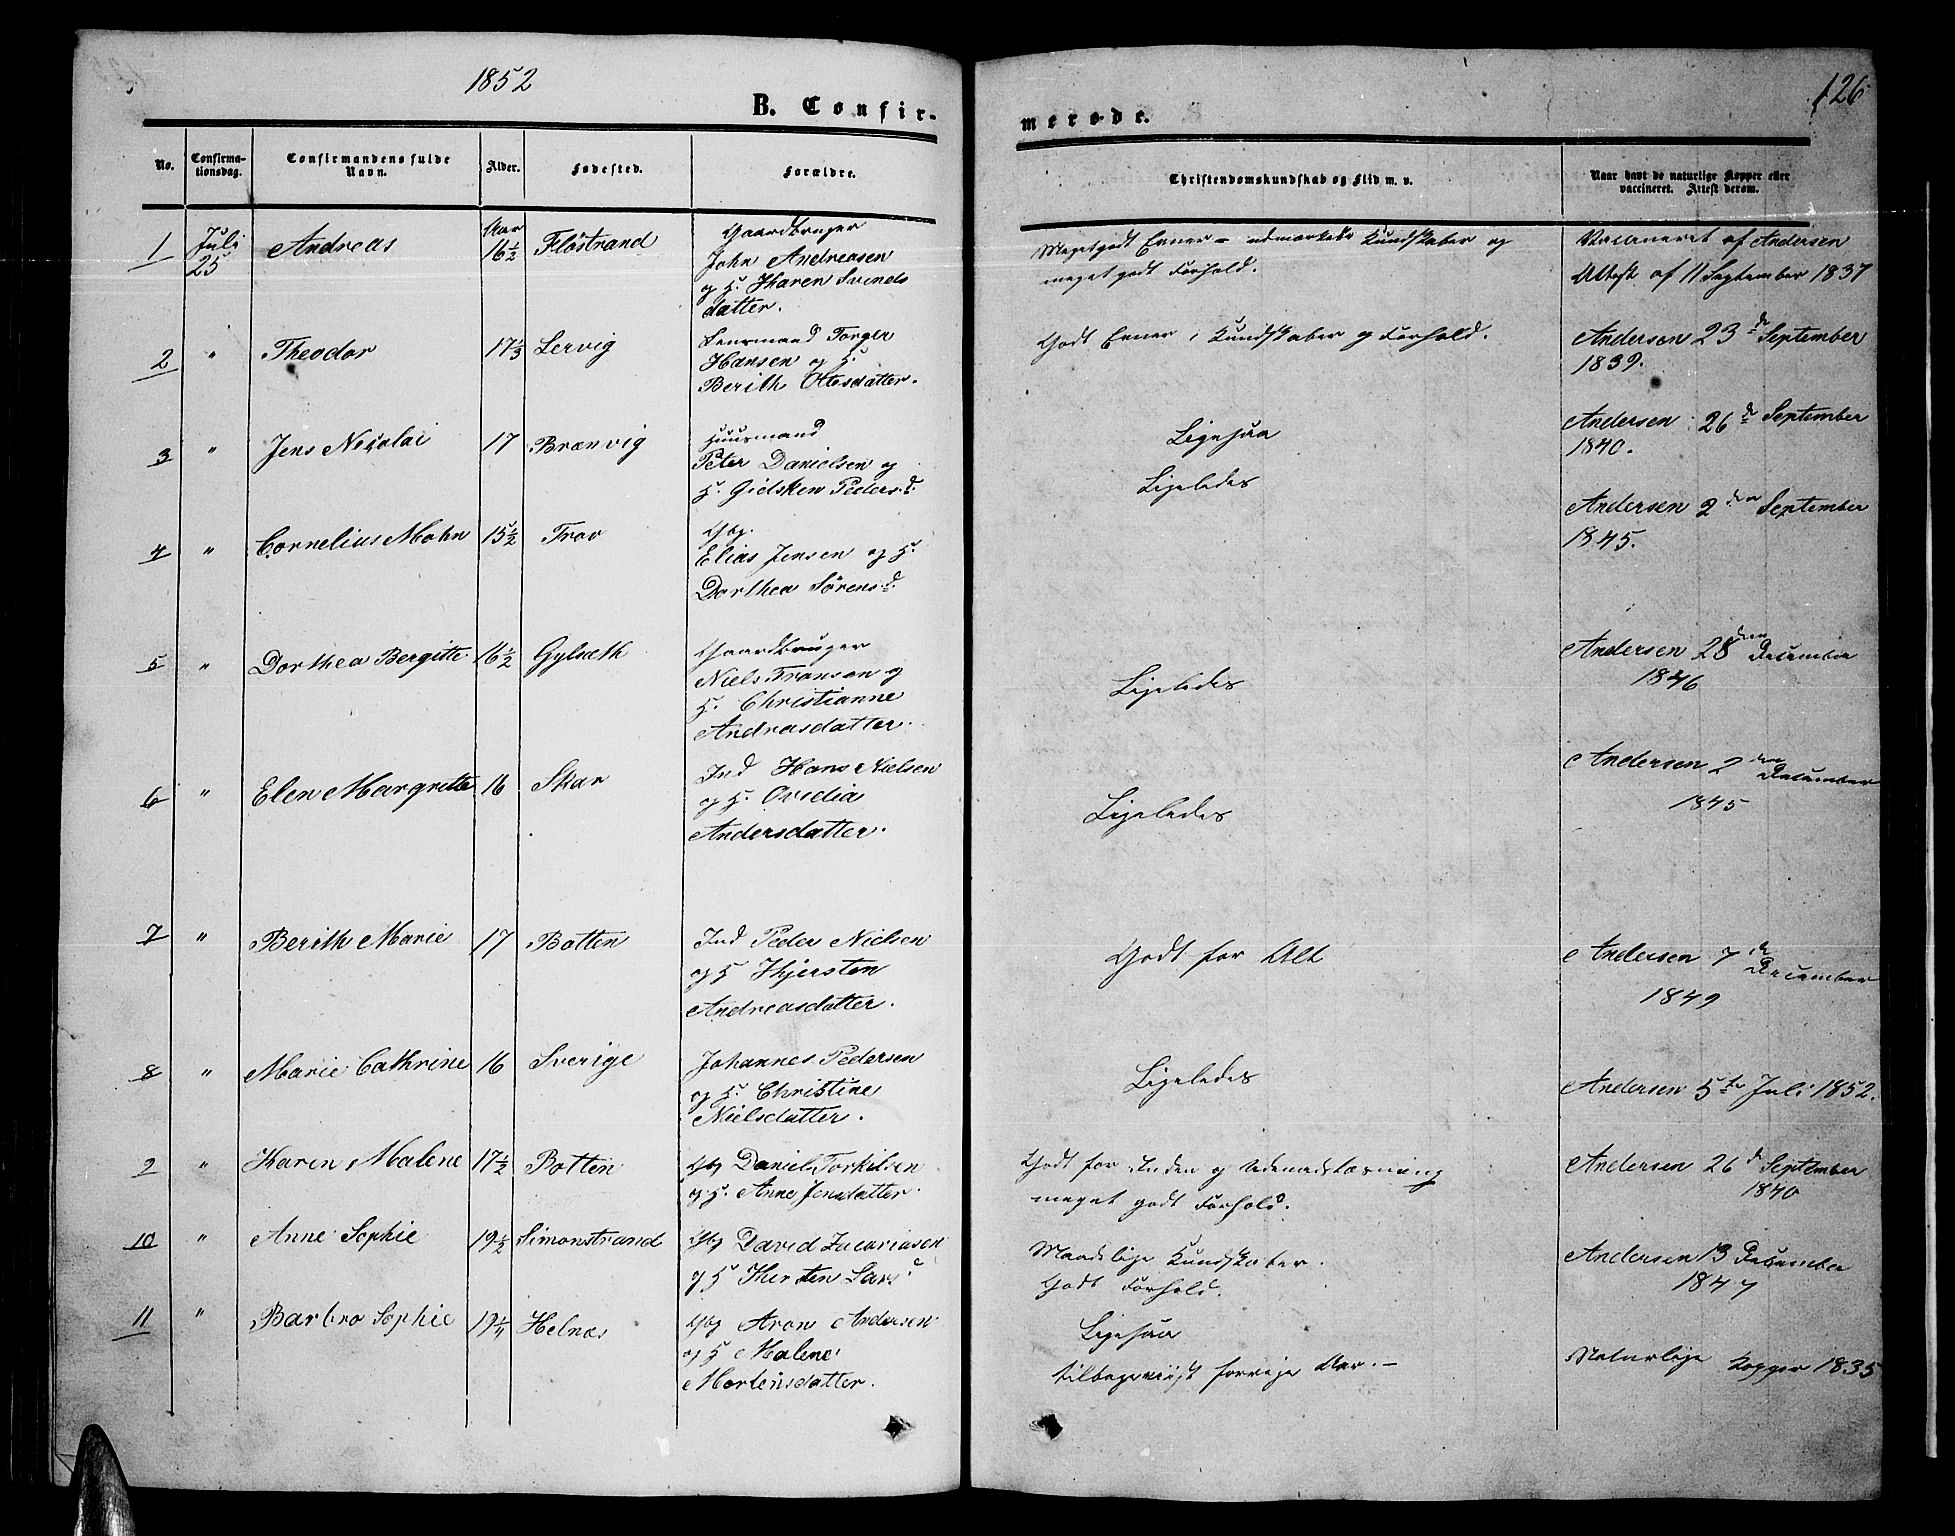 1852
126
B. Confirmerede.
No.
Confirmationsdag.
Confirmandens fulde Navn.
Alder.
Fødested.
Forældre.
Christendomskundskab og Flid m. v.
Naar havt de naturlige Kopper eller vaccineret. Attest derom.
1 Juli 25 Andreas Aar 16½ Flöstrand Gaardbruger
John Andreasen
og H. Karen Svends
datter.
Megetgodt Evner – udmærkede Kundskaber og
meget godt Forhold.
Vaccineret af Andersen
Attest af 11 September 1837
2 " Theodor 17⅓ Lervig Lensmand Torger
Hansen og H.
Berith Olesdatter.
Godt Evner, Kundskaber og Forhold.
Andersen 23de September
1839.
3 " Jens Nicolai 17 Brænvig Huusmand
Peter Danielsen og
H. Gidsken Peders.d.
Ligesaa
Andersen 26de September
1840.
4 " Cornelius Mohn 15½ Trov Gbg.
Elias Jensen og H.
Dorthea Sörens.d.
Ligeledes
Andersen 2den September
1845.
5 " Dorthea Bergitte 16½ Gylseth Gaardbruger
Niels Fransen og
H. Christianne
Andreasdatter.
Ligeledes
Andersen 28den December
1846
6 " Elen Margrette 16 Skar Ind Hans Nielsen
og H. Ovedia
Andersdatter.
Ligeledes
Andersen 2den December
1845
7 " Berith Marie 17 Botten Ind Peder Nielsen
og H Kjersten
Andreasdatter.
Godt for Alt
Andersen 7de December
1849
8 " Marie Cathrine 16 Sverige Johannes Pedersen
og H. Christine
Nielsdatter.
Ligeledes
Andersen 5te Juli 1852.
9 " Karen Malene 17½ Botten Gbg Daniel Torkilsen
og H. Anne Jensdatter.
Godt for Inden og Udenadslæsning
meget godt Forhold.
Andersen 26d September
1840
10 " Anne Sophie 19½ Simonstrand Gbg David Zacariasen
og H Kersten Lars d
Maadelige Kundskaber.
Godt Forhold.
Andersen 13 December
1847
11 " Barbro Sophie 19 Helnæs Gbg Aron Andersen
og H Malene
Mortensdatter.
Ligesaa
tilbageviist forrige Aar. –
Naturlige Kopper 1835